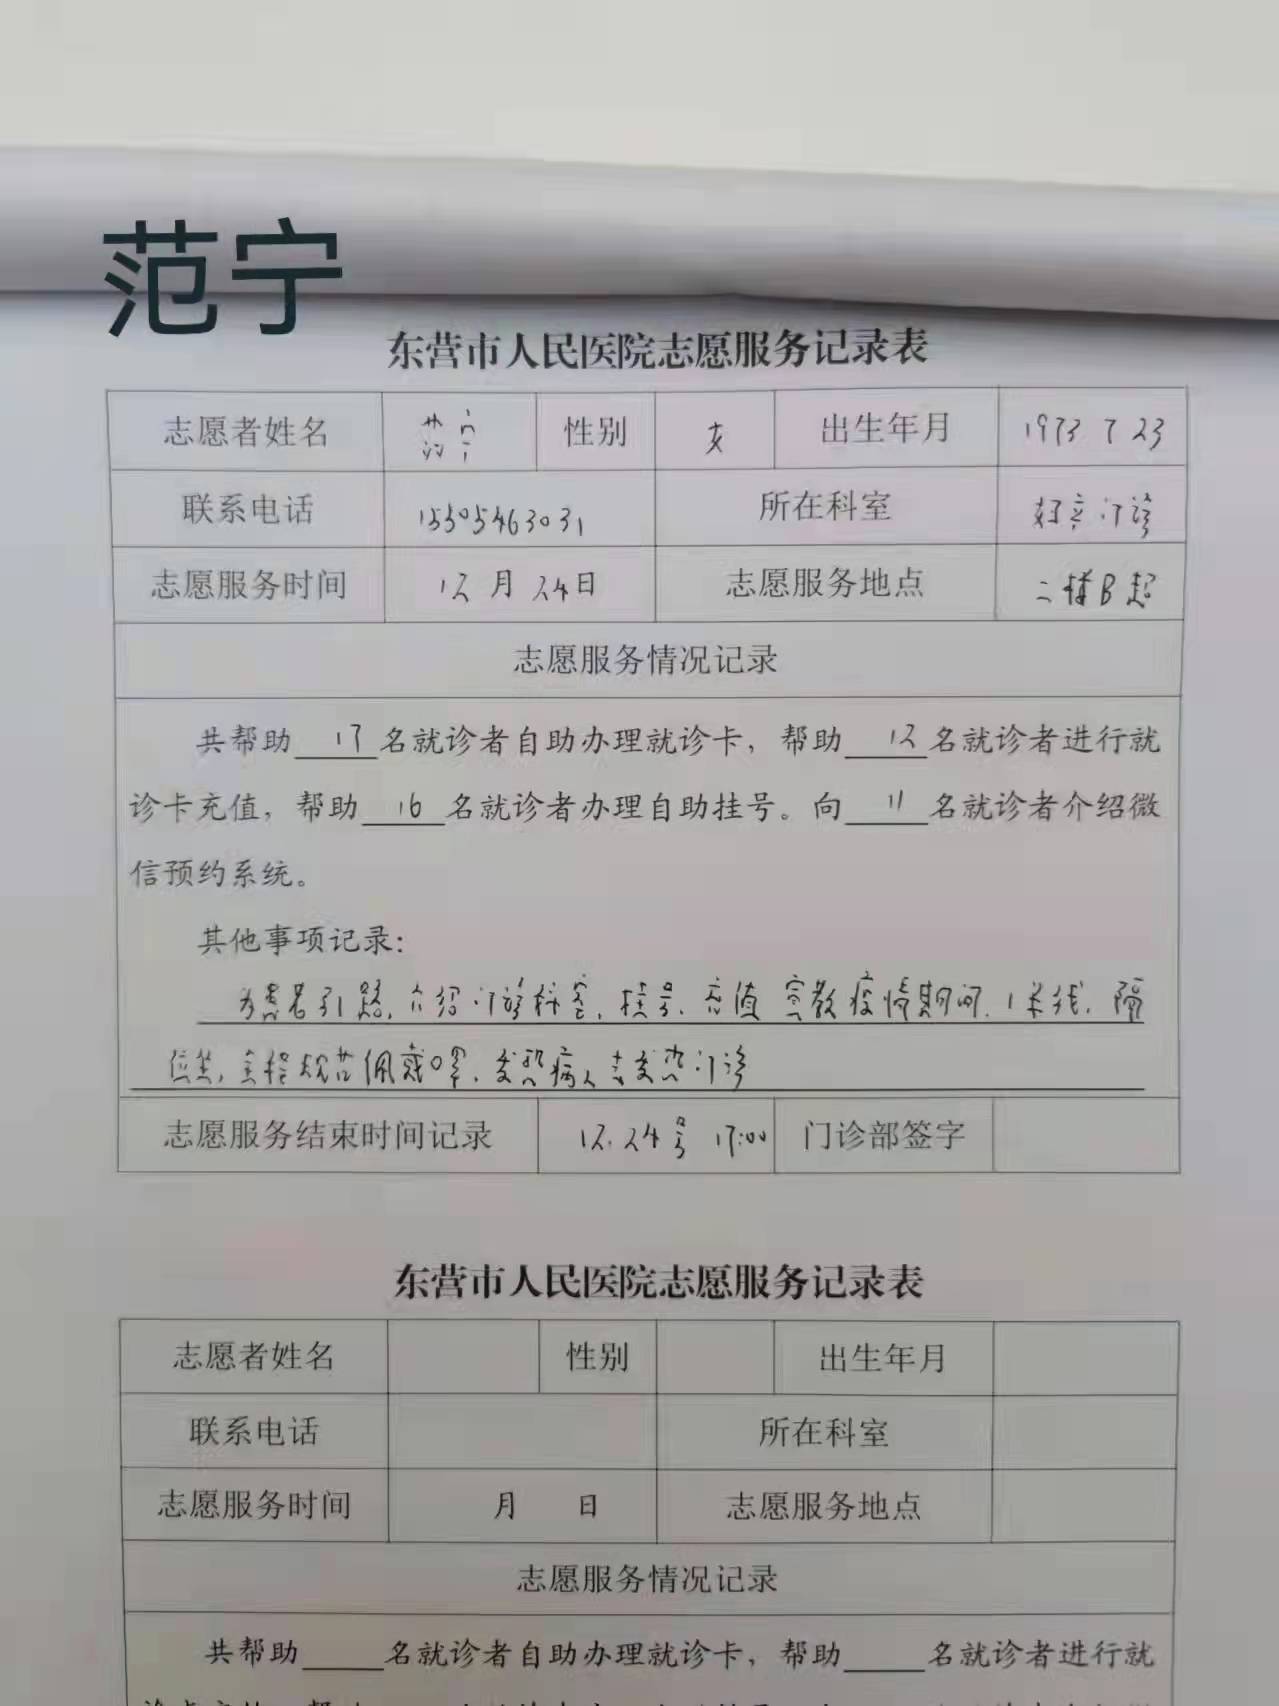 范宁
东营市人民医院志愿服务记录表
志愿者姓名 范宁 性别 女 出生年月 1973 7 23
联系电话 15505463031 所在科室 门诊
志愿服务时间 12月24日 志愿服务地点 二楼B超
志愿服务情况记录
共帮助 17 名就诊者自助办理就诊卡，帮助 12 名就诊者进行就
诊卡充值，帮助 16 名就诊者办理自助挂号。向 11 名就诊者介绍微
信预约系统。
其他事项记录：
为患者引路，介绍门诊科室，挂号，充值 宣教疫情期间，1米线，隔
位坐，全程规范佩戴口罩，发热病人去发热门诊
志愿服务结束时间记录 12.24号 17:00 门诊部签字
东营市人民医院志愿服务记录表
志愿者姓名 性别 出生年月
联系电话 所在科室
志愿服务时间 月 日 志愿服务地点
志愿服务情况记录
共帮助 名就诊者自助办理就诊卡，帮助 名就诊者进行就